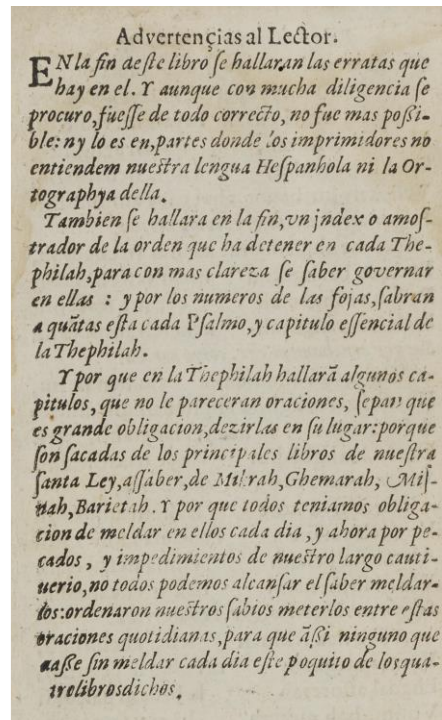 Advertençias al Lector.
EN la fin deste libro se hallaran las erratas que
hay en el. Y aunque con mucha diligencia se
procuro, fuesse de todo correcto, no fue mas possi-
ble: ny lo es en, partes donde los imprimidores no
entiendem nuestra lengua Hespanhola ni la Or-
tographya della.
Tambien se hallara en la fin, vn jndex o amos-
trador de la orden que ha detener en cada The-
philah, para con mas clareza se saber governar
en ellas : y por los numeros de las fojas, sabran
a quãtas esta cada Psalmo, y capitulo essencial de
la Thephilah.
Y por que en la Thephilah hallarã algunos ca-
pitulos, que no le pareceran oraciones, sepan que
es grande obligacion, dezirlas en su lugar: porque
son sacadas de los principales libros de nuestra
santa Ley, assaber, de Mikrah, Ghemarah, Mis-
nah, Barietah. Y por que todos teniamos obliga-
cion de meldar en ellos cada dia, y ahora por pe-
cados, y impedimientos de nuestro largo cauti-
uerio, no todos podemos alcansar el saber meldar-
los: ordenaron nuestros sabios meterlos entre estas
oraciones quotidianas, para que ãssi ninguno que
dasse sin meldar cada dia este poquito de los qua-
tro libros dichos.